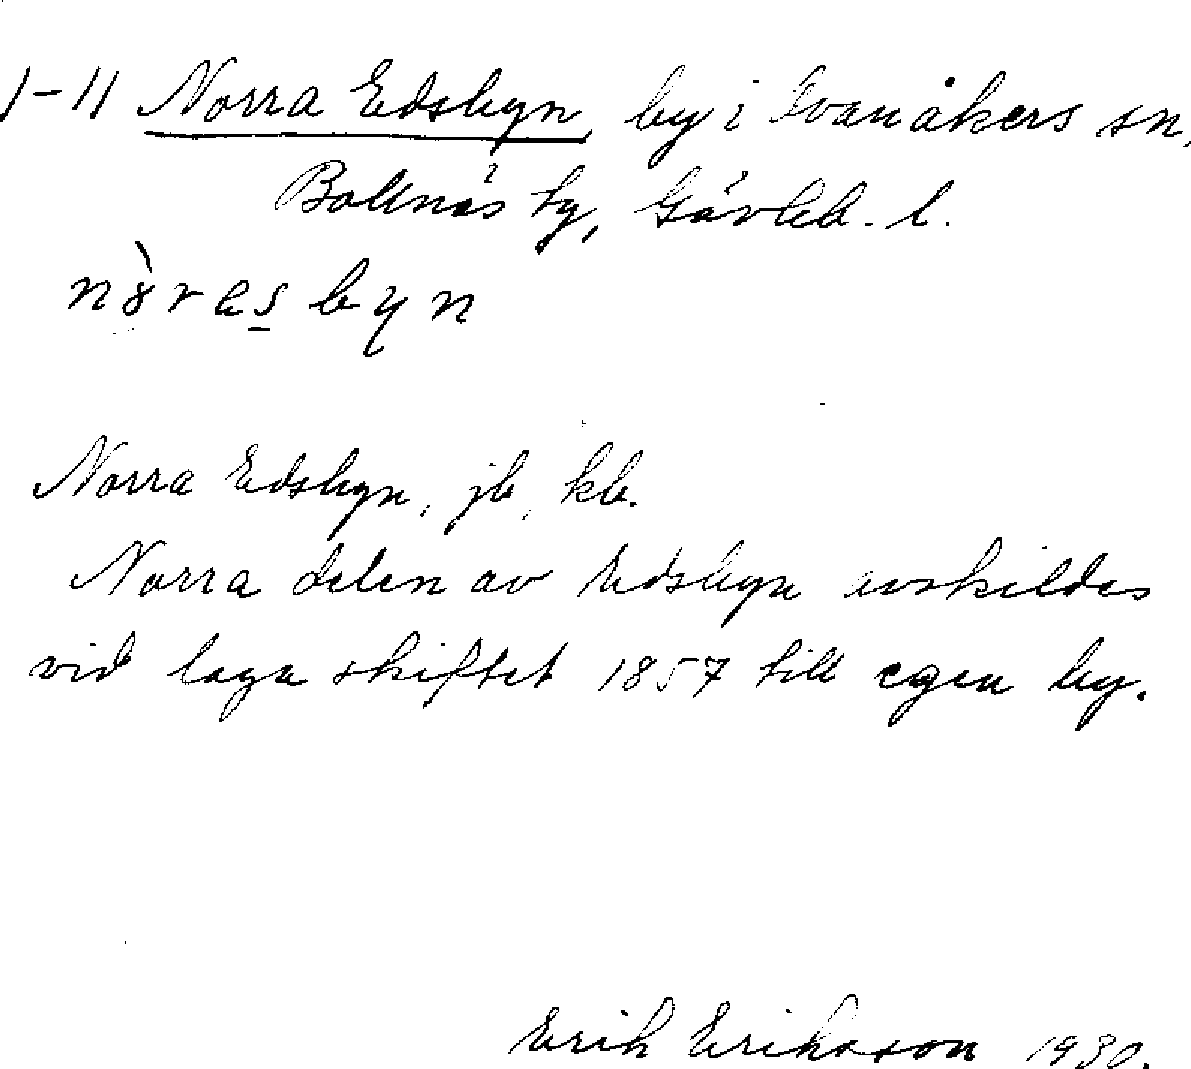 1-11 Norra Edsbyn, by i Ovanåkers sn,
Bollnäs tg, Gävleb. l.
nòresbyn
Norra Edsbyn, jb, kb.
Norra delen av Edsbyn avskildes
vid laga skiftet 1857 till egen by.
Erik Eriksson 1930.